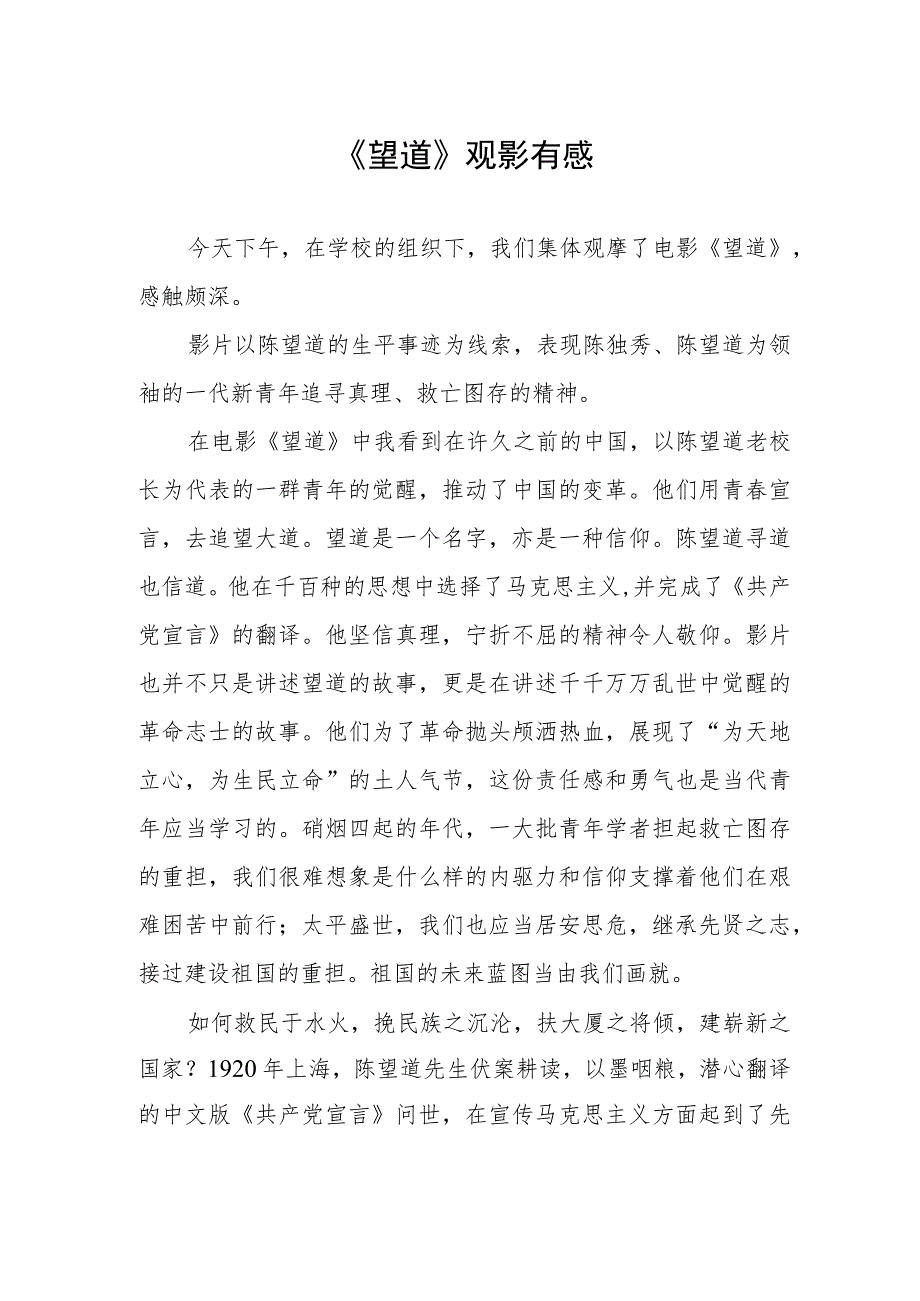 《望道》观影有感
今天下午，在学校的组织下，我们集体观摩了电影《望道》，
感触颇深。
影片以陈望道的生平事迹为线索，表现陈独秀、陈望道为领
袖的一代新青年追寻真理、救亡图存的精神。
在电影《望道》中我看到在许久之前的中国，以陈望道老校
长为代表的一群青年的觉醒，推动了中国的变革。他们用青春宣
言，去追望大道。望道是一个名字，亦是一种信仰。陈望道寻道
也信道。他在千百种的思想中选择了马克思主义,并完成了《共产
党宣言》的翻译。他坚信真理，宁折不屈的精神令人敬仰。影片
也并不只是讲述望道的故事，更是在讲述千千万万乱世中觉醒的
革命志士的故事。他们为了革命抛头颅洒热血，展现了“为天地
立心，为生民立命”的土人气节，这份责任感和勇气也是当代青
年应当学习的。硝烟四起的年代，一大批青年学者担起救亡图存
的重担，我们很难想象是什么样的内驱力和信仰支撑着他们在艰
难困苦中前行；太平盛世，我们也应当居安思危，继承先贤之志，
接过建设祖国的重担。祖国的未来蓝图当由我们画就。
如何救民于水火，挽民族之沉沦，扶大厦之将倾，建崭新之
国家？1920年上海，陈望道先生伏案耕读，以墨咽粮，潜心翻译
的中文版《共产党宣言》问世，在宣传马克思主义方面起到了先